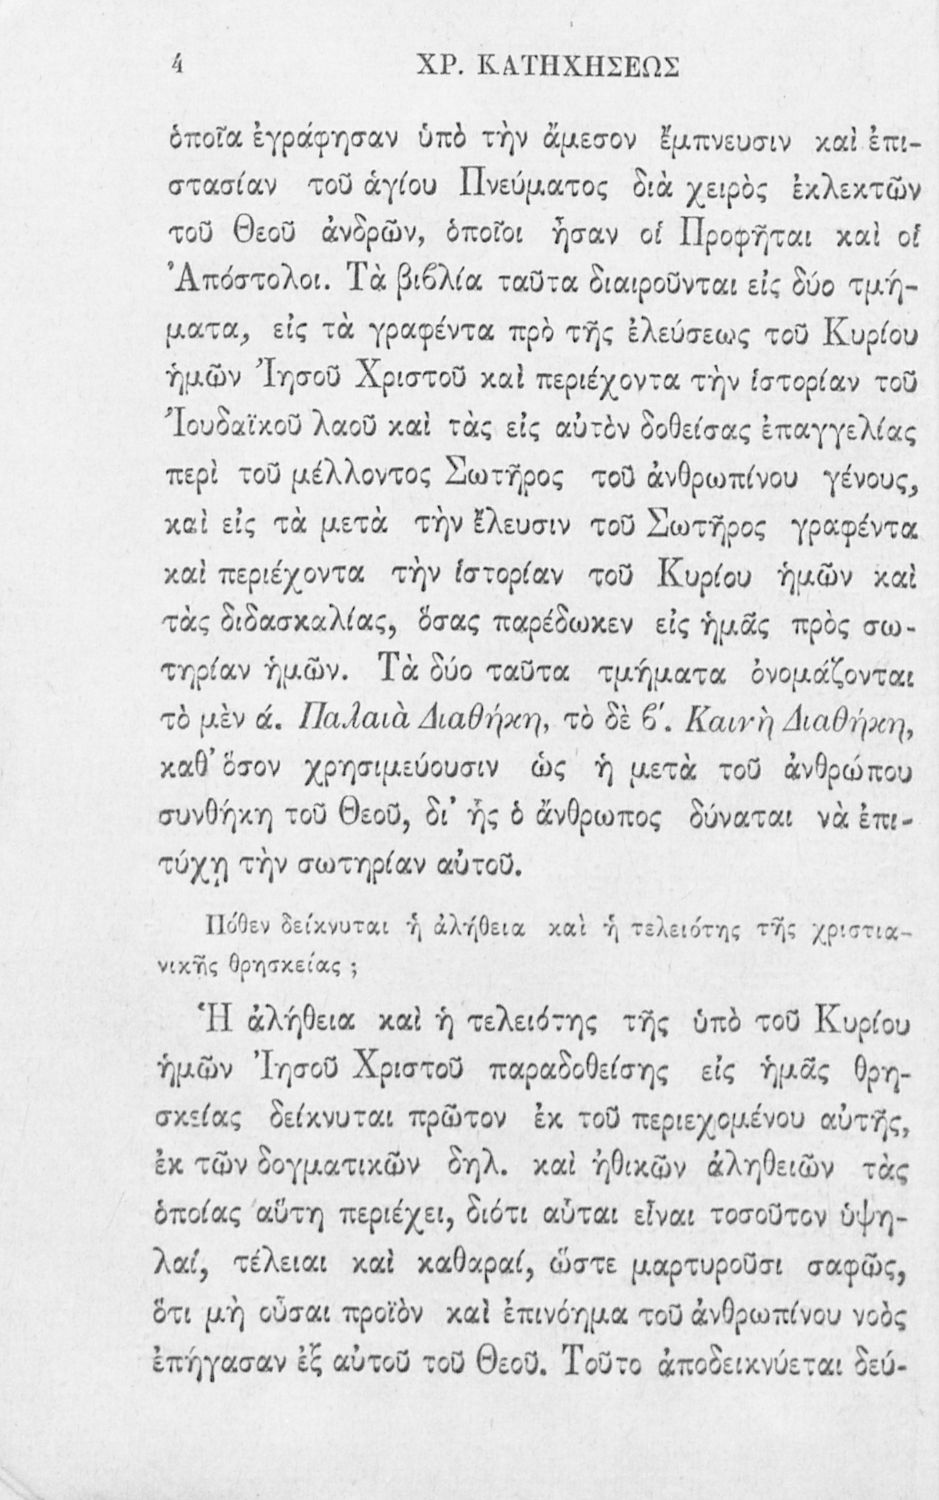 4 ΧΡ. ΚΑΤΗΧΗΣΕΩΣ
ὁποῖα ἐγράφησαν ὑπὸ τὴν ἄμεσον ἔμπνευσιν καὶ ἐπι-
στασίαν τοῦ ἁγίου Πνεύματος διὰ χειρὸς ἐκλεκτῶν
τοῦ Θεοῦ ἀνδρῶν, ὁποῖοι ἦσαν οἱ Προφῆται καὶ οἱ
Ἀπόστολοι. Τὰ βιϐλία ταῦτα διαιροῦνται εἰς δύο τμή-
ματα, εἰς τὰ γραφέντα πρὸ τῆς ἐλεύσεως τοῦ Κυρίου
ἡμῶν Ἰησοῦ Χριστοῦ καὶ περιέχοντα τὴν ἱστορίαν τοῦ
Ἰουδαϊκοῦ λαοῦ καὶ τὰς εἰς αὐτὸν δοθείσας ἐπαγγελίας
περὶ τοῦ μέλλοντος Σωτῆρος τοῦ ἀνθρωπίνου γένους,
καὶ εἰς τὰ μετὰ τὴν ἔλευσιν τοῦ Σωτῆρος γραφέντα
καὶ περιέχοντα τὴν ἱστορίαν τοῦ Κυρίου ἡμῶν καὶ
τὰς διδασκαλίας, ὅσας παρέδωκεν εἰς ἡμᾶς πρὸς σω-
τηρίαν ἡμῶν. Τὰ δύο ταῦτα τμήματα ὀνομάζονται
τὸ μὲν ά. Παλαιὰ Διαθήκη, τὸ δὲ ϐ΄. Καινὴ Διαθήκη,
καθ’ ὅσον χρησιμεύουσιν ὡς ἡ μετὰ τοῦ ἀνθρώπου
συνθήκη τοῦ Θεοῦ, δι’ ἧς ὁ ἄνθρωπος δύναται νὰ ἐπι-
τύχῃ τὴν σωτηρίαν αὐτοῦ.
Πόθεν δείκνυται ἡ ἀλήθεια καὶ ἡ τελειότης τῆς χριστια-
νικῆς θρησκείας ;
Ἡ ἀλήθεια καὶ ἡ τελειότης τῆς ὑπὸ τοῦ Κυρίου
ἡμῶν Ἰησοῦ Χριστοῦ παραδοθείσης εἰς ἡμᾶς θρη-
σκείας δείκνυται πρῶτον ἐκ τοῦ περιεχομένου αὐτῆς,
ἐκ τῶν δογματικῶν δηλ. καὶ ἠθικῶν ἀληθειῶν τὰς
ὁποίας αὕτη περιέχει, διότι αὗται εἶναι τοσοῦτον ὑψη-
λαί, τέλειαι καὶ καθαραί, ὥστε μαρτυροῦσι σαφῶς,
ὅτι μὴ οὖσαι προϊὸν καὶ ἐπινόημα τοῦ ἀνθρωπίνου νοὸς
ἐπήγασαν ἐξ αὐτοῦ τοῦ Θεοῦ. Τοῦτο ἀποδεικνύεται δεύ-